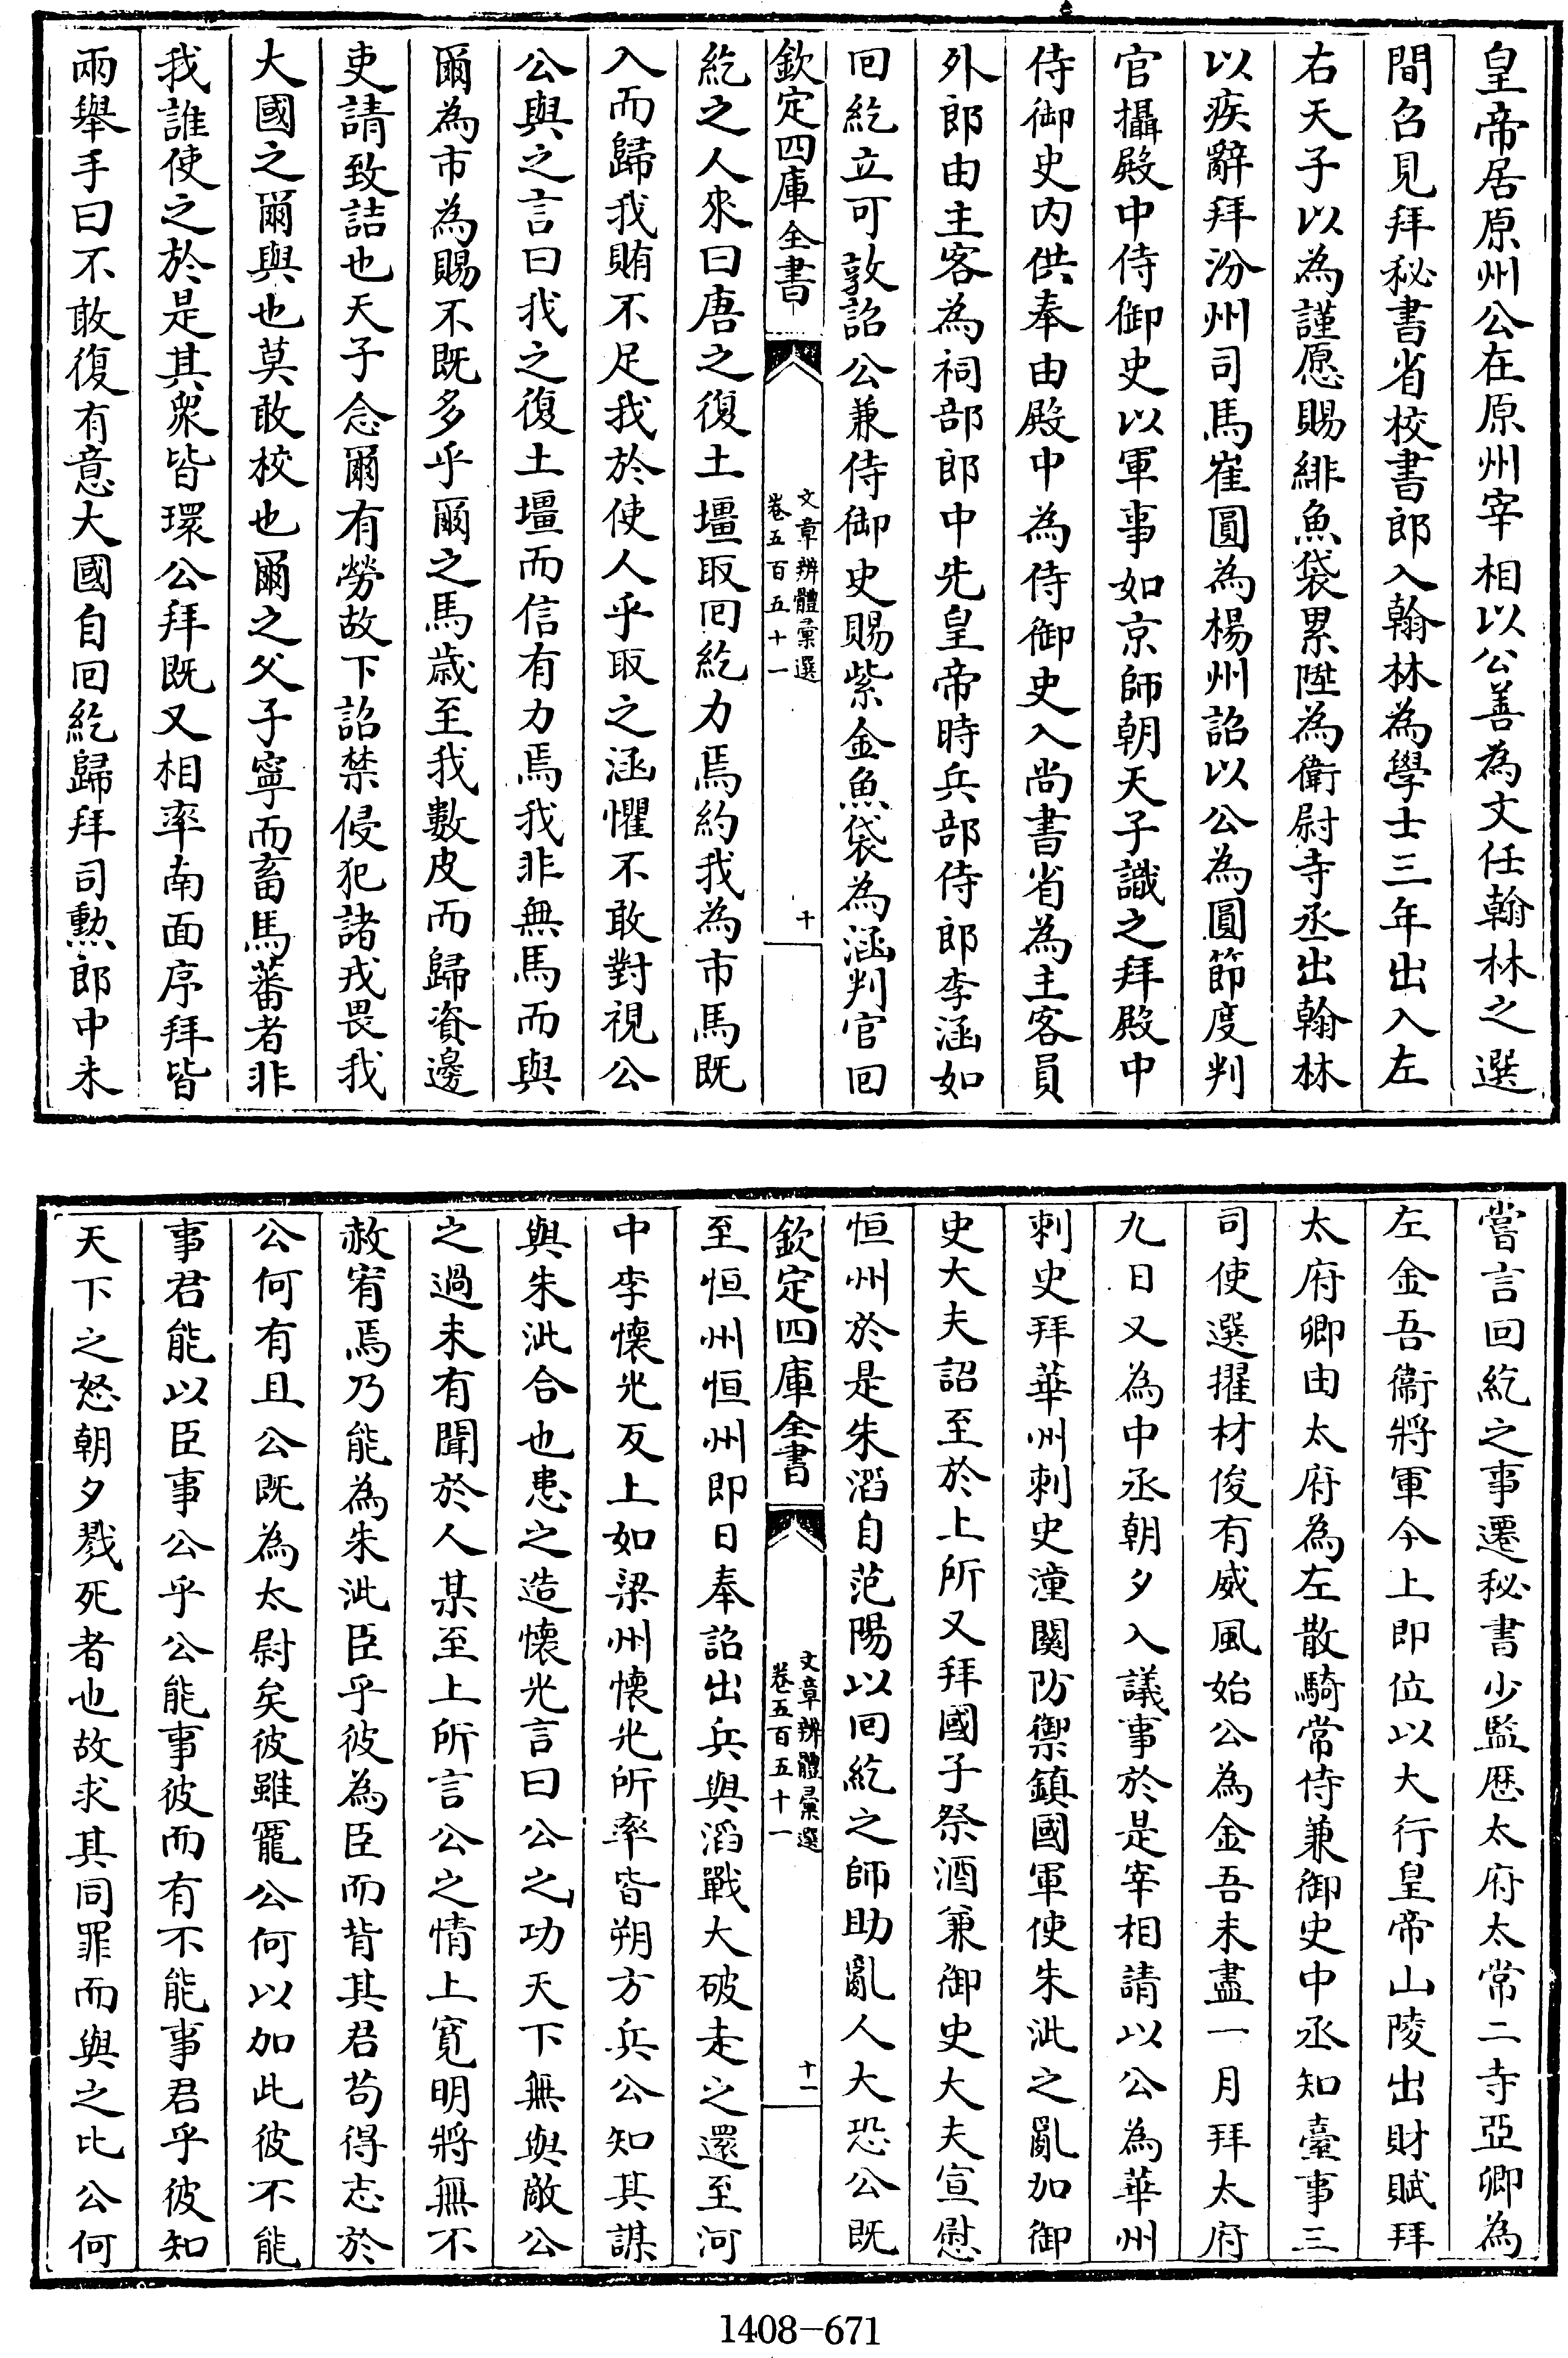 皇帝居原州公在原州宰相以公善為文任翰林之選
間召見拜秘書省校書郎入翰林為學士三年出入左
右天子以為謹愿賜緋魚袋累陞為衛尉寺丞出翰林
以疾辭拜汾州司馬崔圓為楊州詔以公為圓節度判
官攝殿中侍御史以軍事如京師朝天子識之拜殿中
侍御史内供奉由殿中為侍御史入尚書省為主客員
外郎由主客為祠部郎中先皇帝時兵部侍郎李涵如
回紇立可敦詔公兼侍御史賜紫金魚袋為涵判官回
欽定四庫全書
文章辨體彙選
卷五百五十一
十
紇之人來曰唐之復土壃取回紇力焉約我為市馬既
入而歸我賄不足我於使人乎取之涵懼不敢對視公
公與之言曰我之復土壃而信有力焉我非無馬而與
爾為市為賜不既多乎爾之馬歳至我數皮而歸資邊
吏請致詰也天子念爾有勞故下詔禁侵犯諸戎畏我
大國之爾與也莫敢校也爾之父子寧而畜馬蕃者非
我誰使之於是其衆皆環公拜既又相率南面序拜皆
兩舉手曰不敢復有意大國自回紇歸拜司勲郎中未
嘗言回紇之事遷秘書少監歴太府太常二寺亞卿為
左金吾衞將軍今上即位以大行皇帝山陵出財賦拜
太府卿由太府為左散騎常侍兼御史中丞知臺事三
司使選擢材俊有威風始公為金吾未盡一月拜太府
九日又為中丞朝夕入議事於是宰相請以公為華州
刺史拜華州刺史潼關防禦鎮國軍使朱泚之亂加御
史大夫詔至於上所又拜國子祭酒兼御史大夫宣慰
恒州於是朱滔自范陽以回紇之師助亂人大恐公既
欽定四庫全書
文章辨體彙選
卷五百五十一
十一
至恒州恒州即日奉詔出兵與滔戰大破走之還至河
中李懷光反上如梁州懷光所率皆朔方兵公知其謀
與朱泚合也患之造懷光言曰公之功天下無與敵公
之過未有聞於人某至上所言公之情上寛明將無不
赦宥焉乃能為朱泚臣乎彼為臣而背其君苟得志於
公何有且公既為太尉矣彼雖寵公何以加此彼不能
事君能以臣事公乎公能事彼而有不能事君乎彼知
天下之怒朝夕戮死者也故求其同罪而與之比公何
1408-671